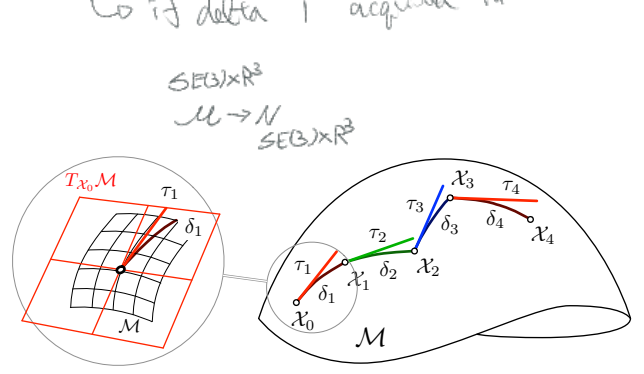 ↳ if delta 1 acquired
SE(3)×R³
M → N
SE(3)×R³
T_{X₀}M
τ₁
δ₁
M
τ₁
δ₁
X₀
X₁
τ₂
δ₂
X₂
τ₃
δ₃
X₃
τ₄
δ₄
X₄
M